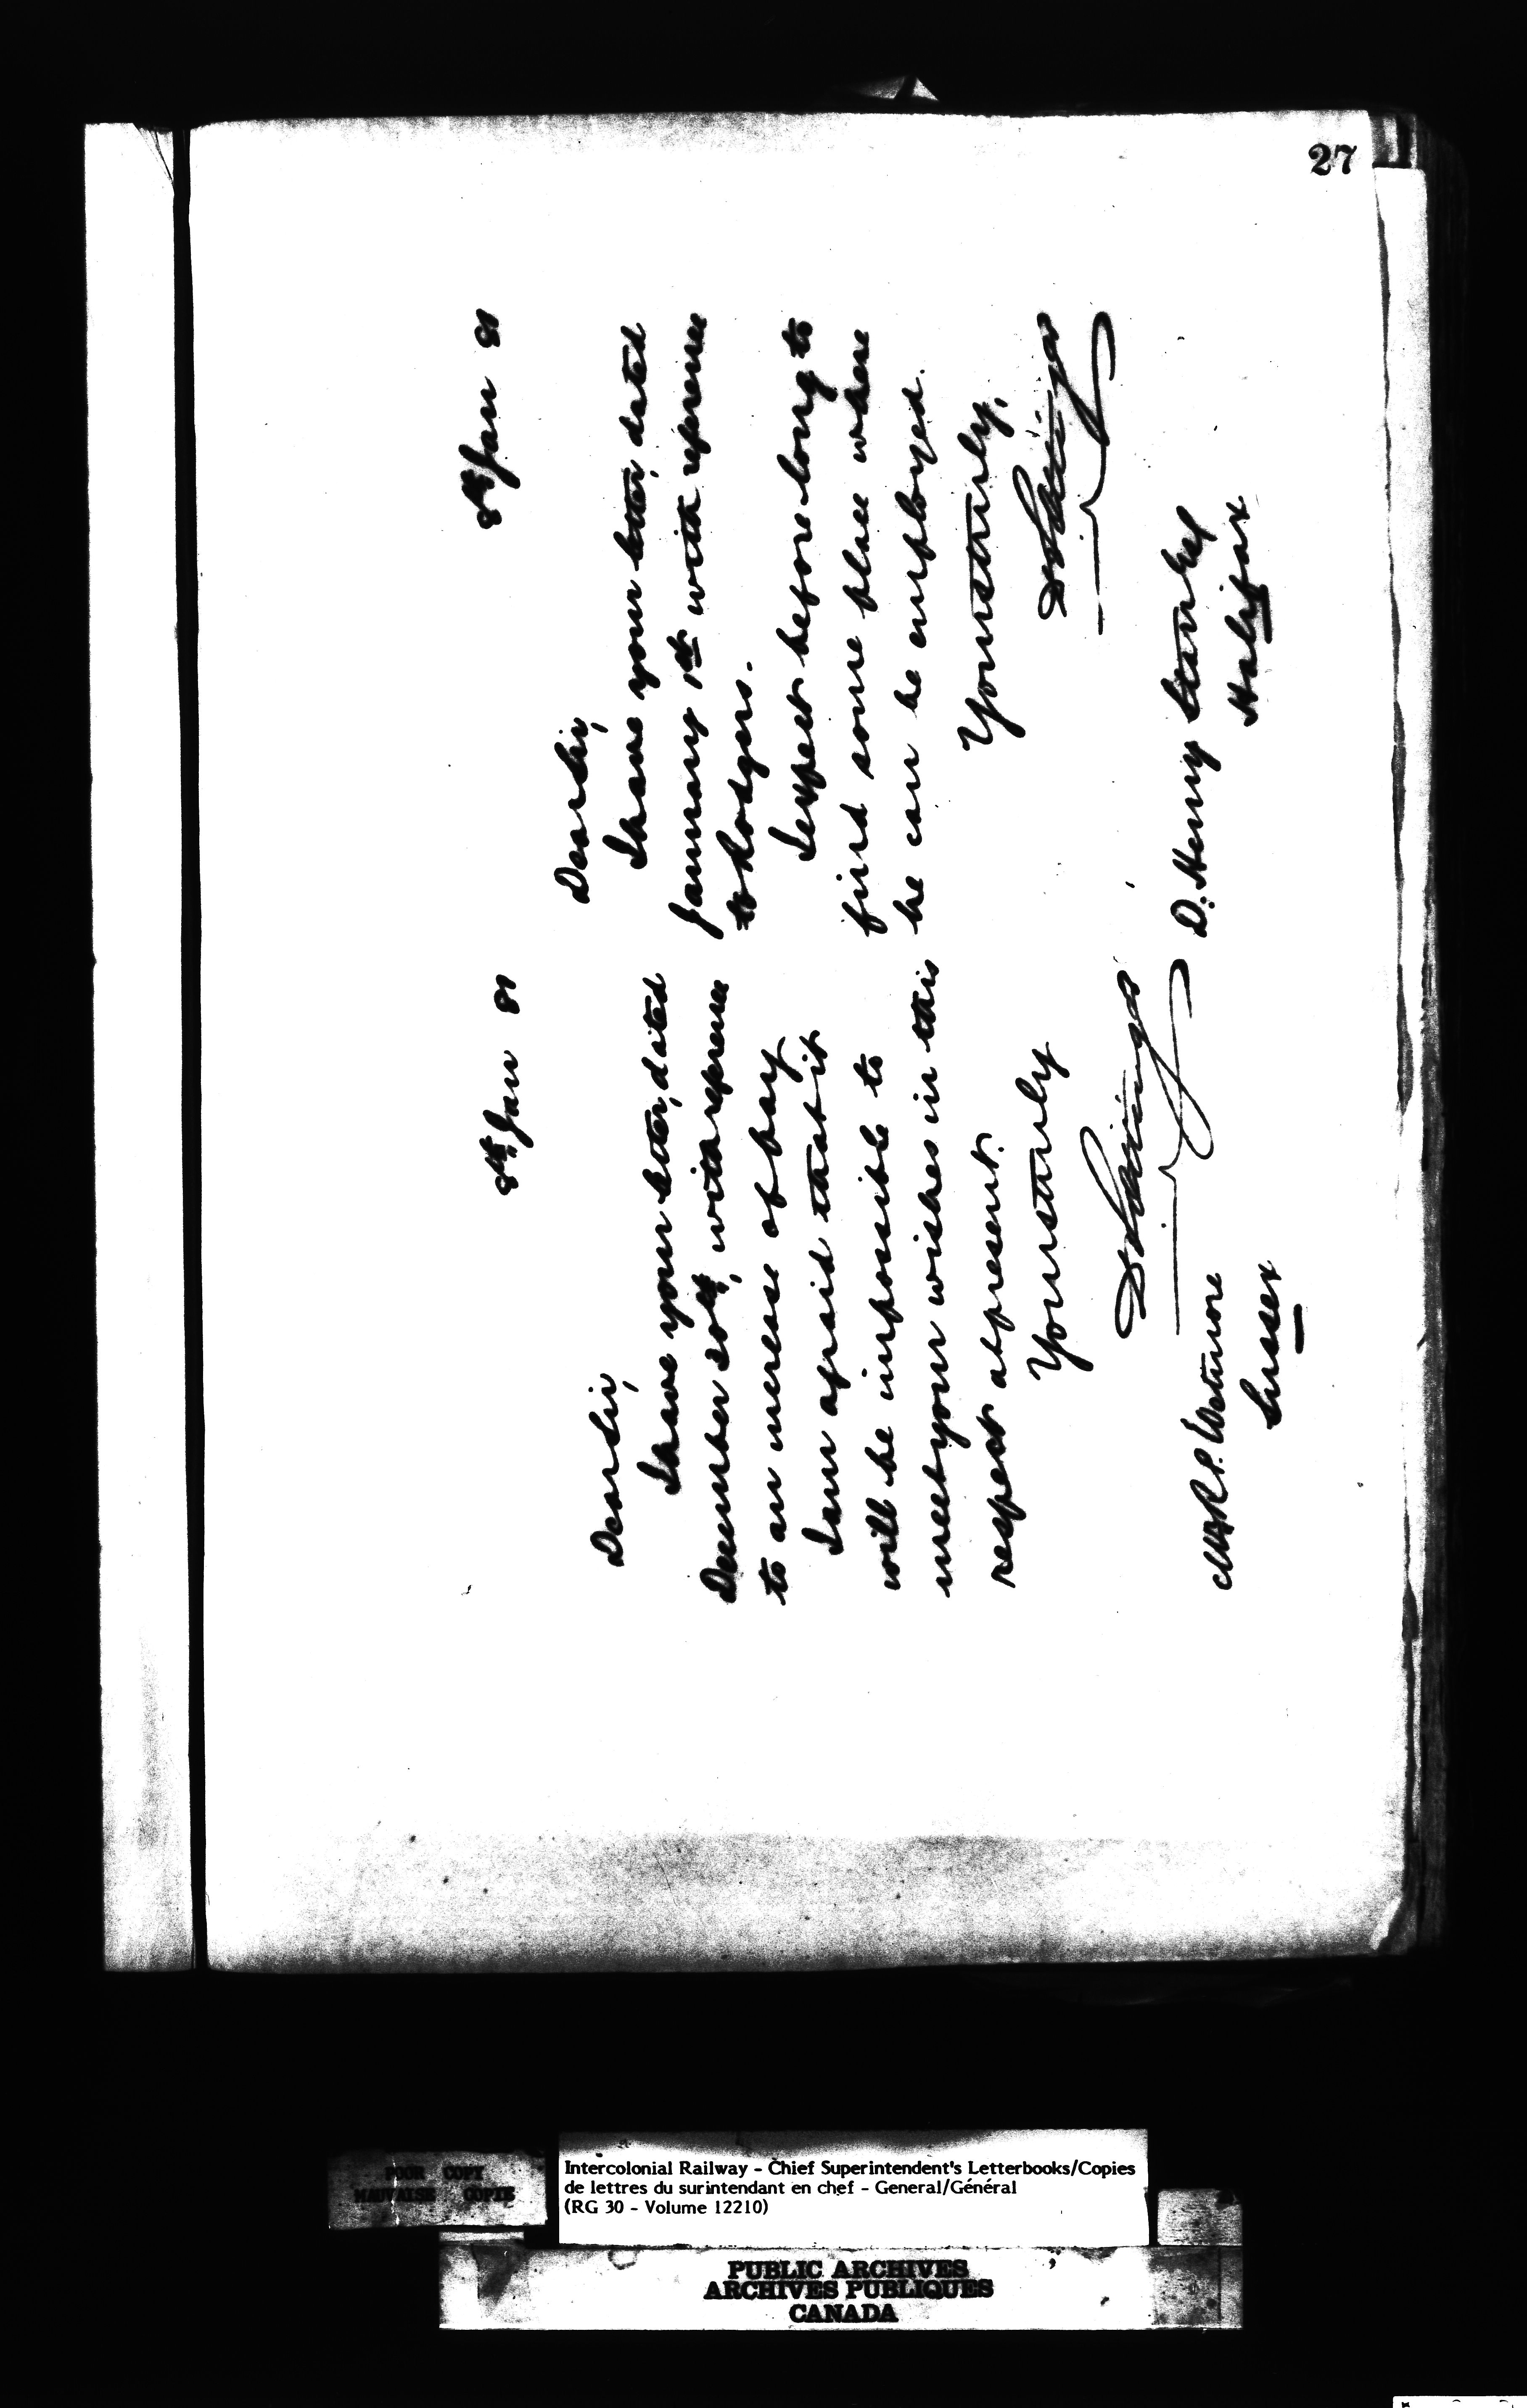 27
8th Jan 81
Dear Sir,
I have your letter, dated
December 30th, with reference
to an increase of pay
I am afraid that it
will be impossible to
meet your wishes in this
respect at present.
Yours truly
D Pottinger
Mr R P. Wetmore
Sussex
8th Jan 81
Dear Sir,
I have your letter, dated
January 1st with reference
to Rodgers.
I expect before long to
find some place where
he can be employed.
Yours truly,
D Pottinger
D. Henry Starr Esq
Halifax
POOR COPY
MAUVAISE COPIE
Intercolonial Railway - Chief Superintendent's Letterbooks/Copies
de lettres du surintendant en chef - General/Général
(RG 30 - Volume 12210)
PUBLIC ARCHIVES
ARCHIVES PUBLIQUES
CANADA